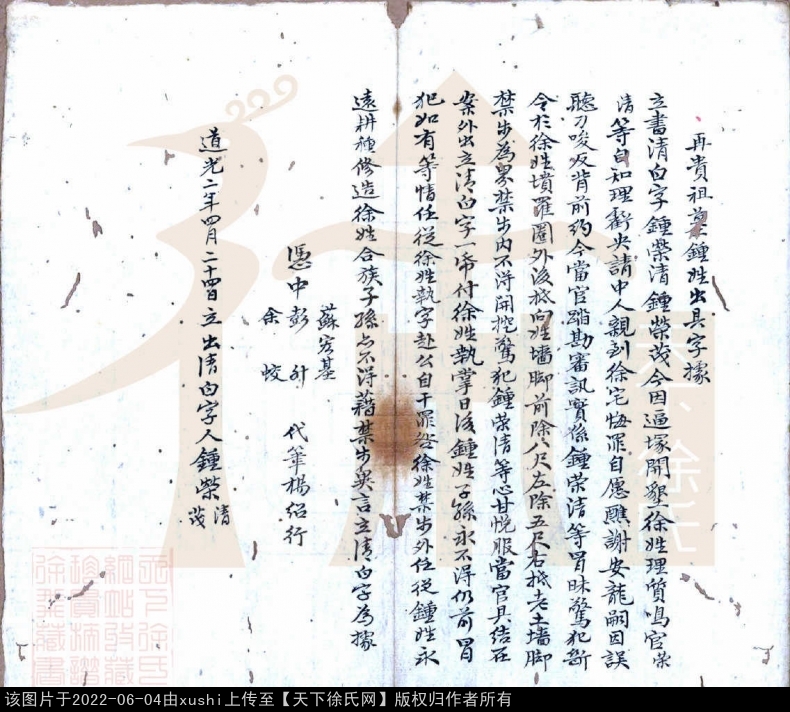 再貴祖墓鍾姓出具字據
立書清白字鍾榮清鍾榮茂今因逼塚開墾徐姓理質鳴官榮
清等自知理虧央請中人親到徐宅悔罪自愿醮謝安龍嗣因誤
聽刁唆反背前約今當官踏勘審訊實係鍾榮清等冒昧驚犯斷
令於徐姓墳羅圈外後抵向姓墻脚前除八尺左除五尺右抵老土墻脚
禁步為界禁步內不淂開挖驚犯鍾榮清等心甘悅服當官具結在
案外出立清白字一帋付徐姓執掌日後鍾姓子孫永不得仍前冒
犯如有等情任從徐姓執字赴公自干罪咎徐姓禁步外任從鍾姓永
遠耕種修造徐姓合族子孫亦不得藉禁步異言立清白字為據
憑中 蘇宏基
彭升
余蛟
代筆楊紹行
道光二年四月二十四日立出清白字人鍾榮清
茂
天下·徐氏
该图片于2022-06-04由xushi上传至【天下徐氏网】版权归作者所有